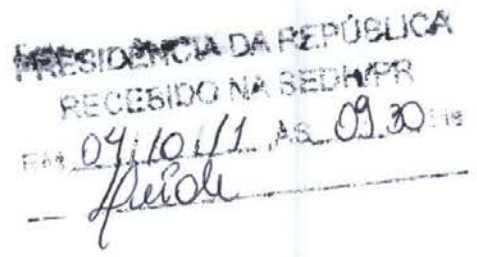 PRESIDÊNCIA DA REPÚBLICA
RECEBIDO NA SEDH/PR
EM 04/10/11 ,AS 09.30 HS